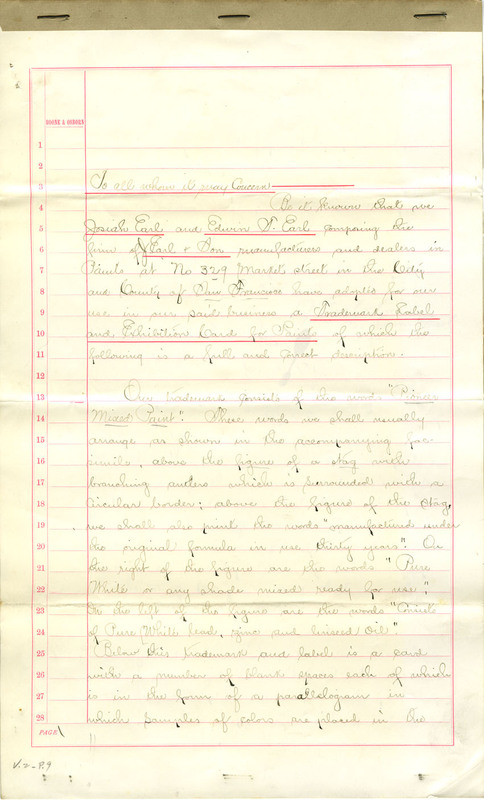 BOONE & OSBORN
1
2
3 To all whom it may Concern
4 Be it known that we
5 Josiah Earl and Edwin T. Earl composing the
6 firm of Earl & Son manufacturers and dealers in
7 Paints at No 329 Market street in the City
8 and County of San Francisco have adopted for our
9 use in our said business a Trademark Label
10 and Exhibition Card for Paints of which the
11 following is a full and correct description.
12
13 Our trademark consists of the words "Pioneer
14 Mixed Paint". These words we shall usually
15 arrange as shown in the accompanying fac-
16 simile, above the figure of a stag with
17 branching antlers which is surrounded with a
18 circular border; above the figure of the stag,
19 we shall also print the words "manufactured under
20 the original formula in use thirty years". On
21 the right of the figure are the words "Pure
22 White or any shade mixed ready for use",
23 On the left of the figure are the words "Consist
24 of Pure White lead, zinc and linseed Oil".
25 Below this trademark and label is a card
26 with a number of blank spaces each of which
27 is in the form of a parallelogram in
28 which samples of colors are placed in the
PAGE 1
V.2-P.9